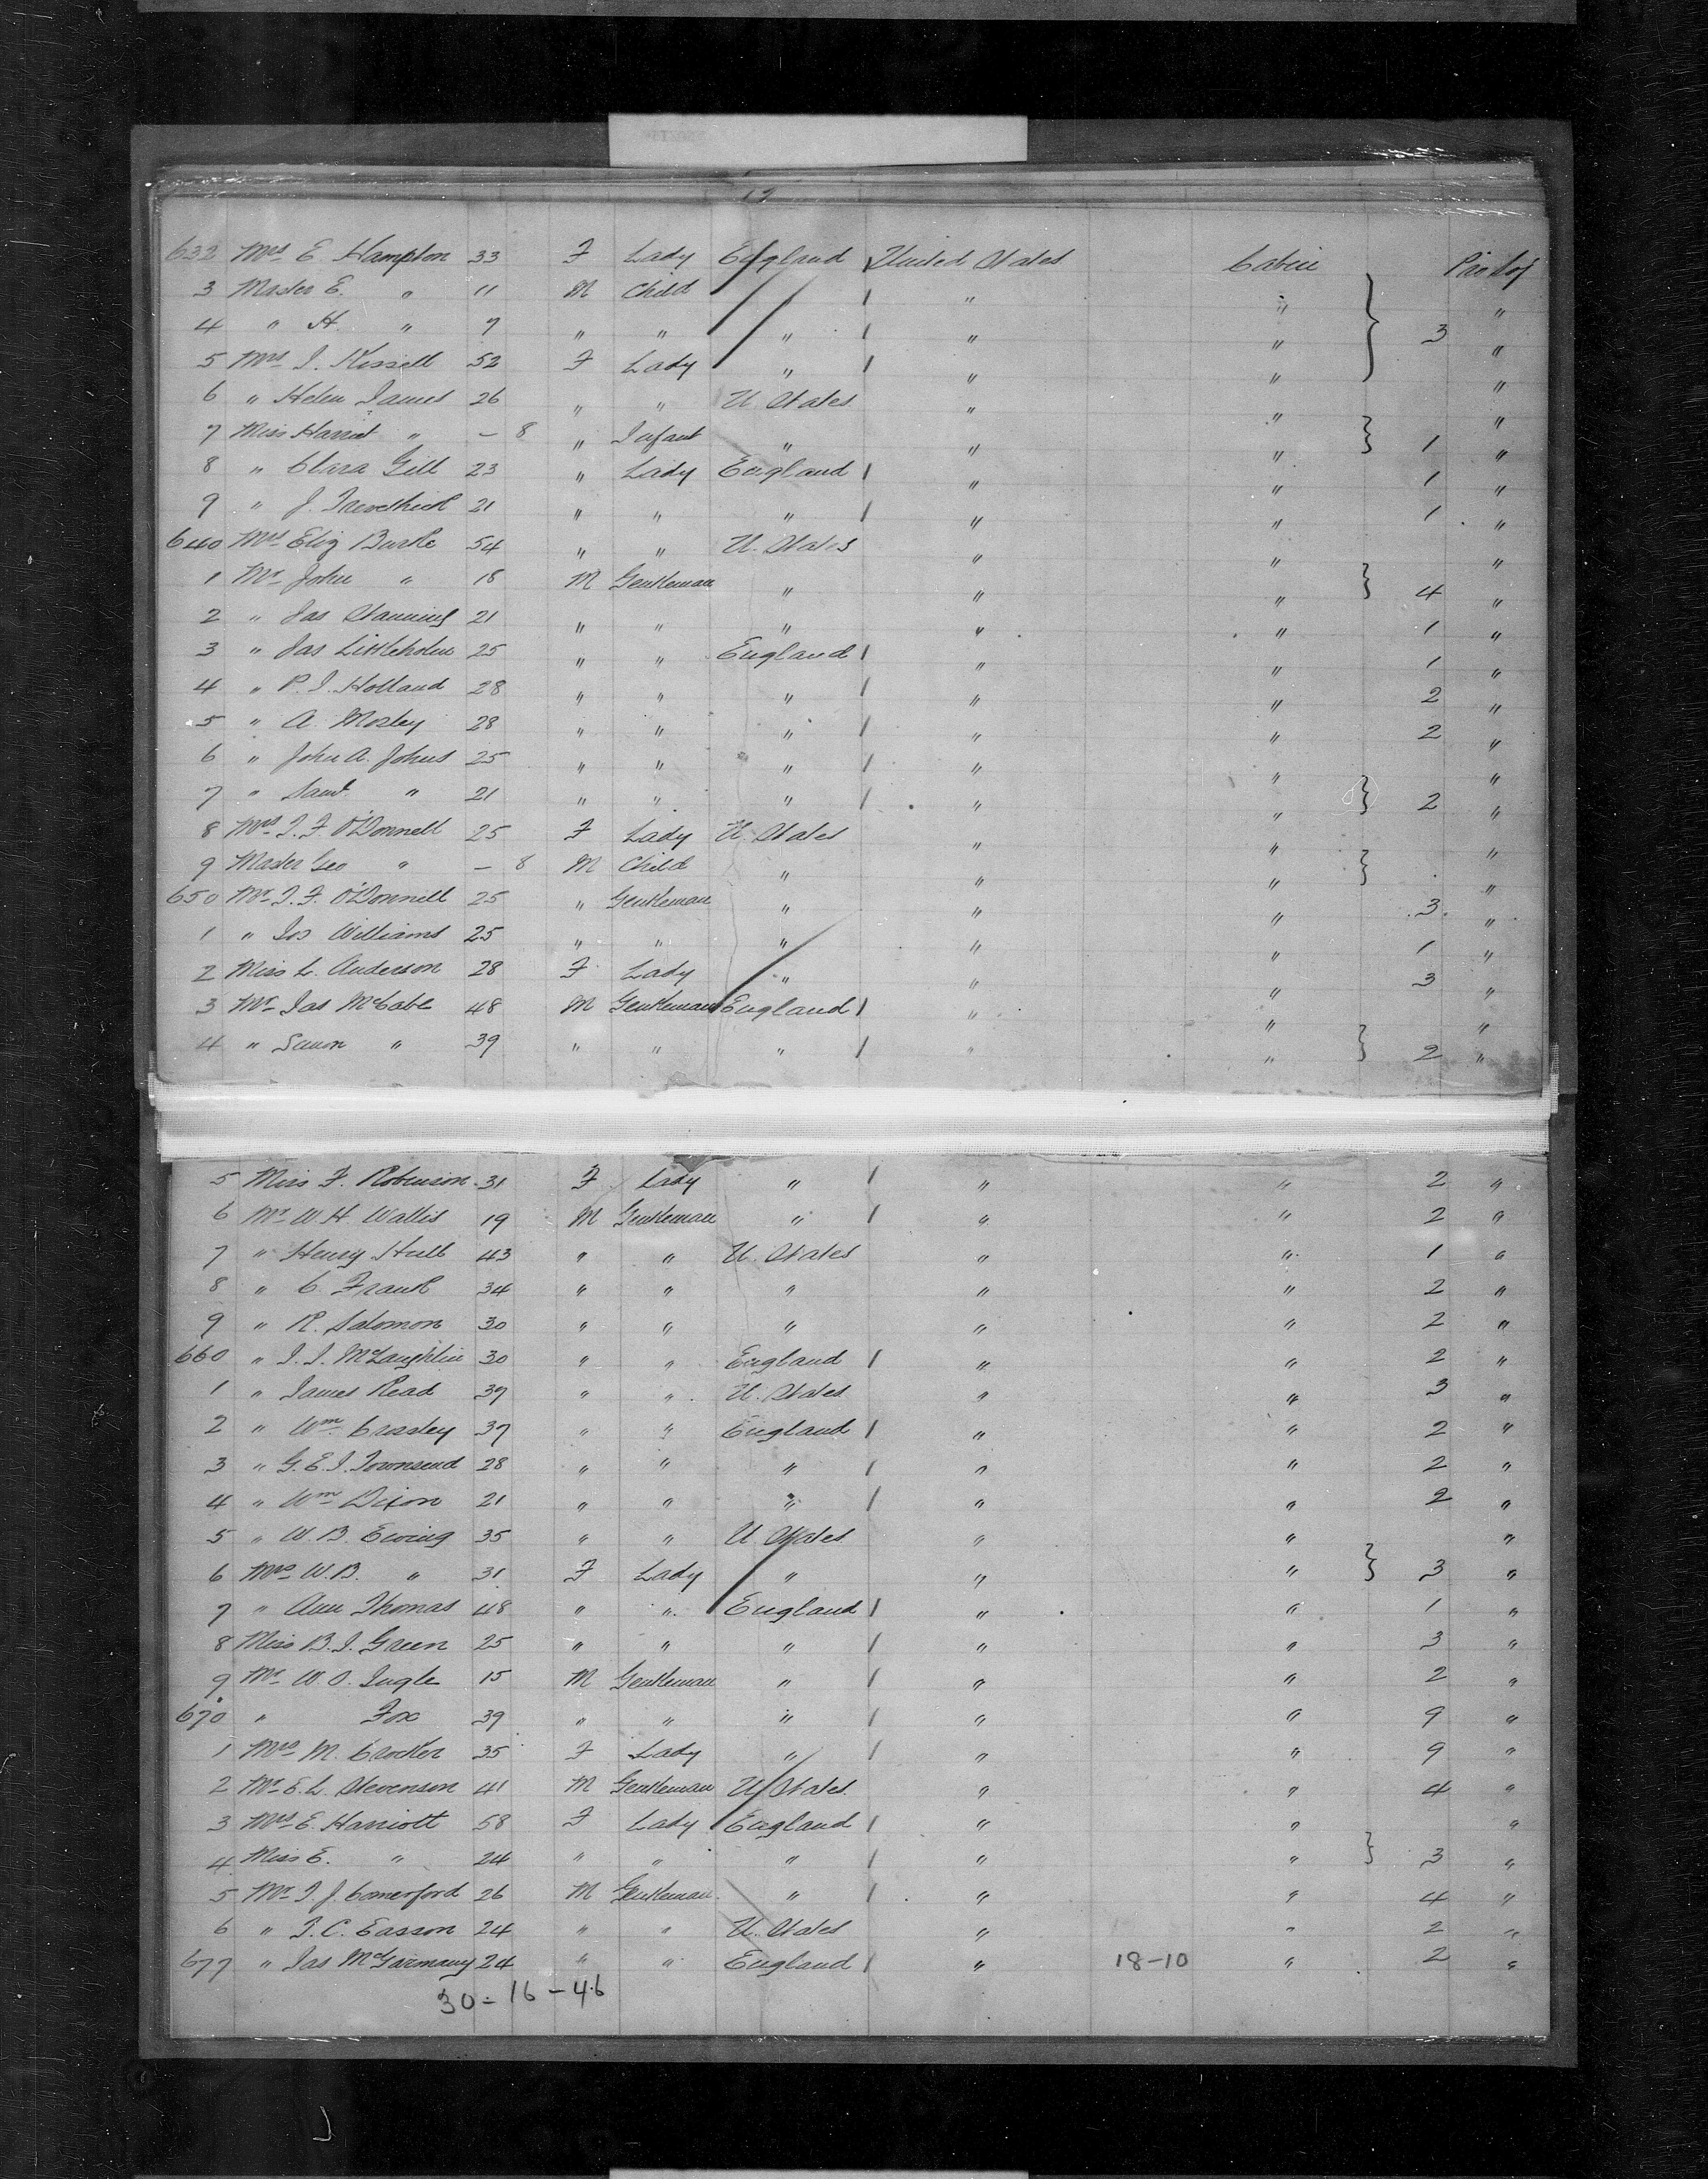 632 Mrs E. Hampton 33 F Lady England United States Cabin
3 Master E. " 11 M Child " " "
4 " H. " 7 " " " " " 3 "
5 Mrs J. Kissell 52 F Lady " " " "
6 " Helen James 26 " " U. States " " "
7 Miss Harriet " – 8 " Infant " " " 1 "
8 " Clara Gill 23 " Lady England " " 1 "
9 " J. 21 " " " " " 1 "
640 Mrs Eliz Burke 54 " " U. States " " "
1 Mr John " 18 M Gentleman " " " 4 "
2 " Jas 21 " " " " " 1 "
3 " Jas 25 " " England " " 1 "
4 " P. J. Holland 28 " " " " " 2 "
5 " A. Mosley 28 " " " " " 2 "
6 " John A. Johns 25 " " " " " "
7 " Saml " 21 " " " " " 2 "
8 Mrs J. F. O'Donnell 25 F Lady U. States " " "
9 Master Geo " – 8 M Child " " " "
650 Mr J. F. O'Donnell 25 " Gentleman " " " 3 "
1 " Jos Williams 25 " " " " " 1 "
2 Miss L. Anderson 28 F Lady " " " 3 "
3 Mr Jas McCabe 48 M Gentleman England " " "
4 " " 39 " " " " " 2 "
5 Miss F. Robinson 31 F Lady " " " 2 "
6 Mr W. H. Wallis 19 M Gentleman " " " 2 "
7 " Henry Hull 43 " " U. States " " 1 "
8 " C. Frank 34 " " " " " 2 "
9 " R. Salomon 30 " " " " " 2 "
660 " J. J. McLaughlin 30 " " England " " 2 "
1 " James Read 39 " " U. States " " 3 "
2 " Wm Crosley 39 " " England " " 2 "
3 " G. E. J. Townsend 28 " " " " " 2 "
4 " Wm Dixon 21 " " " " " 2 "
5 " W. B. Ewing 35 " " U. States " " "
6 Mrs W. B. " 31 F Lady " " " 3 "
7 " Ann Thomas 48 " " England " " 1 "
8 Miss B. J. Green 25 " " " " " 3 "
9 Mr W. O. Ingle 15 M Gentleman " " " 2 "
670 " Fox 39 " " " " " 9 "
1 Mrs M. Crocker 35 F Lady " " " 9 "
2 Mr E. L. Stevenson 41 M Gentleman U. States " " 4 "
3 Mrs E. Harriott 58 F Lady England " " "
4 Miss E. " 24 " " " " " 3 "
5 Mr J. J. Comerford 26 M Gentleman " " " 4 "
6 " J. C. Easson 24 " " U. States " " 2 "
677 " Jas McGarmany 24 " " England " 18-10 " 2 "
30 - 16 - 46